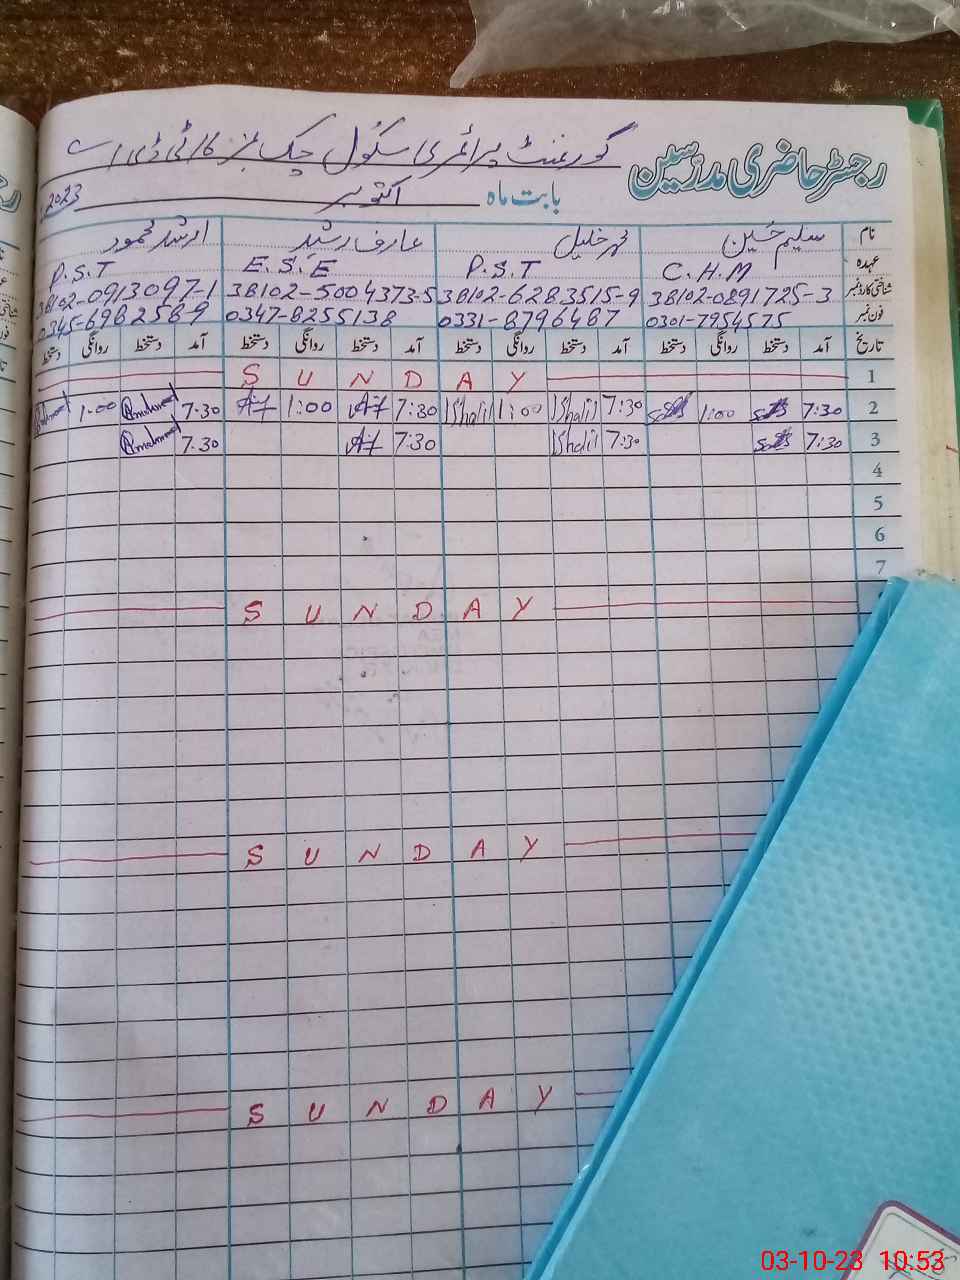 رجسٹر حاضری مدرسین
گورنمنٹ پرائمری سکول چک نمبر 16 ٹی ڈی اے
بابت ماہ اکتوبر 2023
نام سلیم حسین محمد خلیل عارف رشید ارشد محمود
عہدہ C.H.M P.S.T E.S.E P.S.T
شناختی کارڈ نمبر 38102-0891725-3 38102-6283515-9 38102-5004373-5 38102-0913097-1
فون نمبر 0301-7954575 0331-8796487 0347-8255138 0345-6982589
تاریخ آمد دستخط روانگی دستخط آمد دستخط روانگی دستخط آمد دستخط روانگی دستخط آمد دستخط روانگی دستخط
1 SUNDAY
2 7:30 1:00 7:30 Khalil 1:00 Khalil 7:30 1:00 7:30 1:00
3 7:30 7:30 Khalil 7:30 7:30
4
5
6
7
SUNDAY
SUNDAY
SUNDAY
03-10-23 10:53